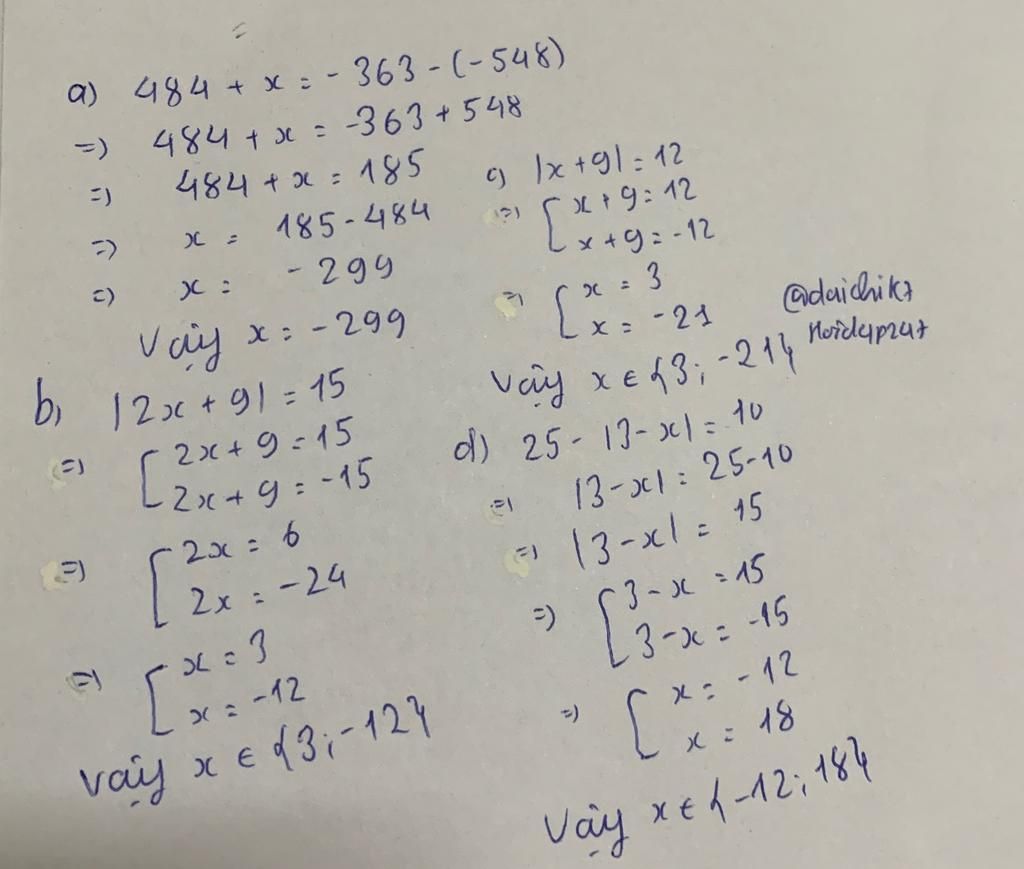 a) 484 + x = -363 - (-548)
=) 484 + x = -363 + 548
=) 484 + x = 185
=) x = 185 - 484
=) x = -299
Vậy x = -299
b, |2x + 9| = 15
=) [ 2x + 9 = 15
2x + 9 = -15
=) [ 2x = 6
2x = -24
=) [ x = 3
x = -12
Vậy x ∈ {3; -12}
c) |x + 9| = 12
=) [ x + 9 = 12
x + 9 = -12
=) [ x = 3
x = -21
Vậy x ∈ {3; -21}
@daichik7
Hoidap247
d) 25 - |3 - x| = 10
=) |3 - x| = 25 - 10
=) |3 - x| = 15
=) [ 3 - x = 15
3 - x = -15
=) [ x = -12
x = 18
Vậy x ∈ {-12; 18}